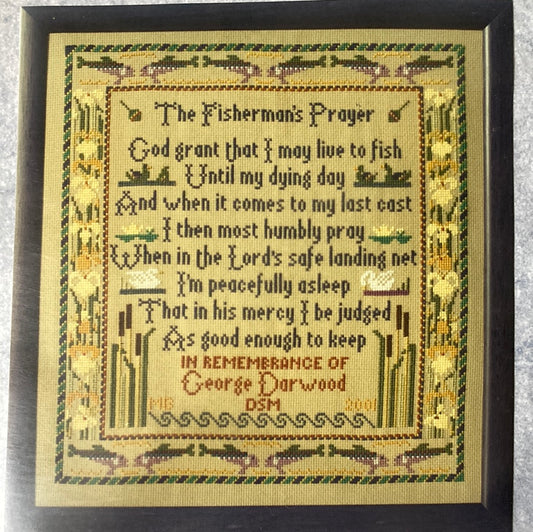 The Fisherman's Prayer
God grant that I may live to fish
Until my dying day
And when it comes to my last cast
I then most humbly pray
When in the Lord's safe landing net
I'm peacefully asleep
That in his mercy I be judged
As good enough to keep
IN REMEMBRANCE OF
George Darwood
MG DSM 2001